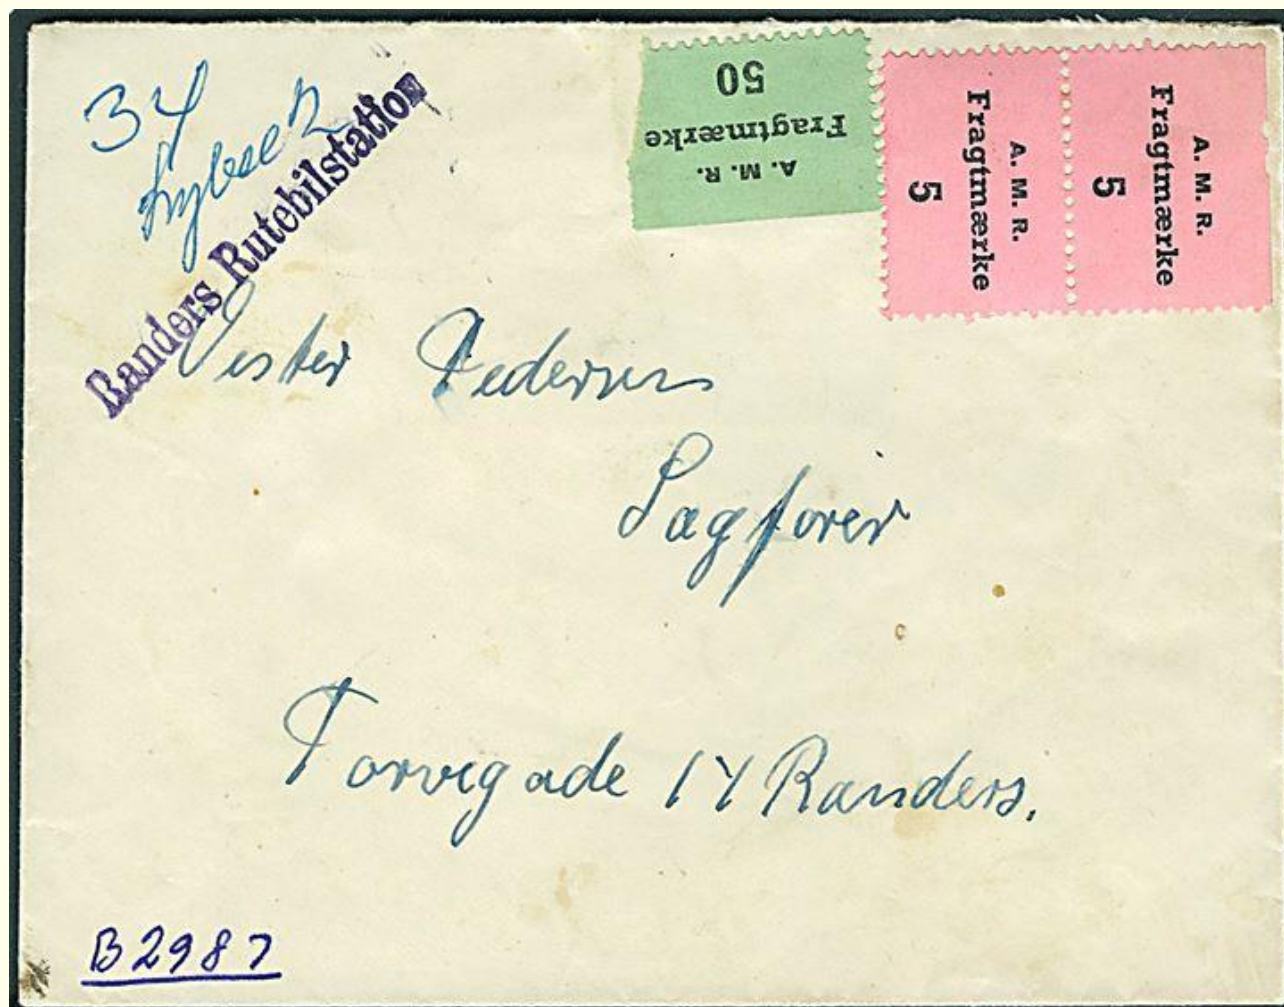 34
Randers Rutebilstation
50
Fragtmærke
A. M. R.
A. M. R.
Fragtmærke
5
A. M. R.
Fragtmærke
5
Vester Pedersen
Sagfører
Torvegade 14 Randers.
B2987